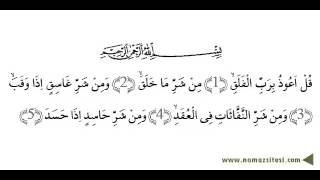 بِسْمِ اللهِ الرَّحْمٰنِ الرَّحِيمِ
قُلْ اَعُوذُ بِرَبِّ الْفَلَقِۙ ﴿1﴾ مِنْ شَرِّ مَا خَلَقَۙ ﴿2﴾ وَمِنْ شَرِّ غَاسِقٍ اِذَا وَقَبَۙ
﴿3﴾ وَمِنْ شَرِّ النَّفَّاثَاتِ فِى الْعُقَدِۙ ﴿4﴾ وَمِنْ شَرِّ حَاسِدٍ اِذَا حَسَدَ ﴿5﴾
www.namazsitesi.com